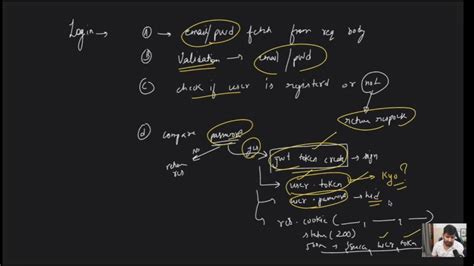 Login → (a) → email/pwd fetch from req body
(b) Validation → email / pwd
(c) check if user is registered or not
return response
(d) compare password
No
yes
return
res
jwt token create → sign
user.token → Kyo?
user.password → hid
res.cookie ( , , )
status (200)
json → success, user, token